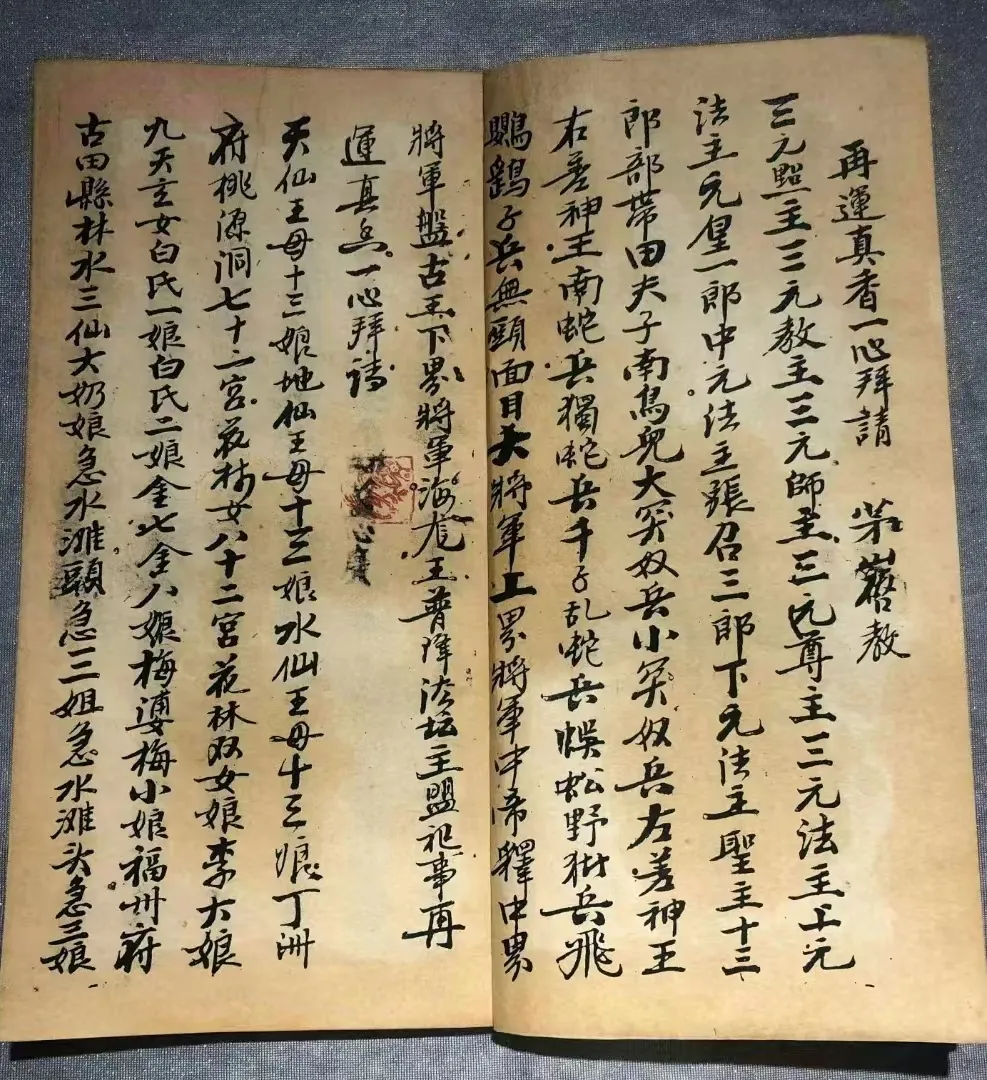 再運真香一心拜請 茅山舊教
三元照主三元教主三元師主三元尊主三元法主上元
法主元皇一郎中元法主張召二郎下元法主聖主十三
郎部帶田夫子南鳥兒大笑奴兵小笑奴兵左差神王
右差神王南蛇兵獨蛇兵千子乱蛇兵蜈蚣野狀兵飛
鸚鵡子兵無頭面目大將軍上界將軍中帝釋中界
將軍盤古王下界將軍海龍王普降法坛主盟祀事再
運真香一心拜請
天仙王母十三娘地仙王母十三娘水仙王母十三娘丁洲
府桃源洞七十二宮花樹女八十二宮花林双女娘李大娘
九天玄女白氏一娘白氏二娘金七金八娘梅婆梅小娘福州府
古田縣林水三仙大奶娘急水滩頭急三姐急水滩头急三娘